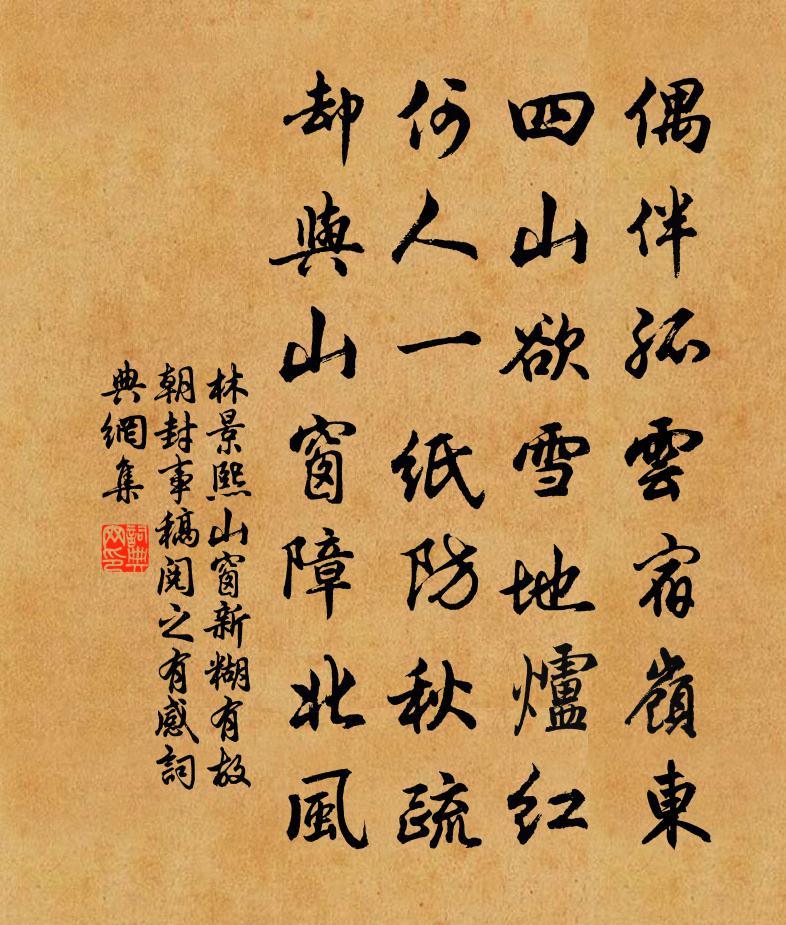 偶伴孤雲宿嶺東
四山欲雪地爐紅
何人一紙防秋疏
却與山窗障北風
林景熙山窗新糊有故
朝封事稿閱之有感詞
典網集
詞典網印